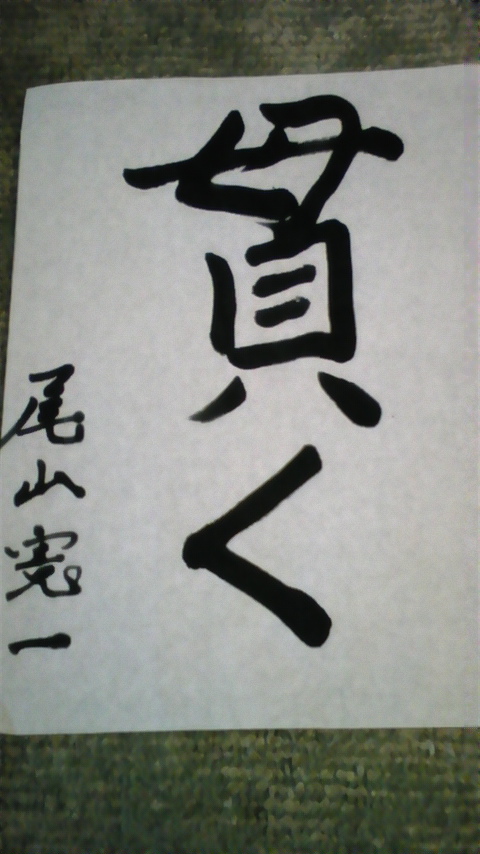 貫く
尾山憲一